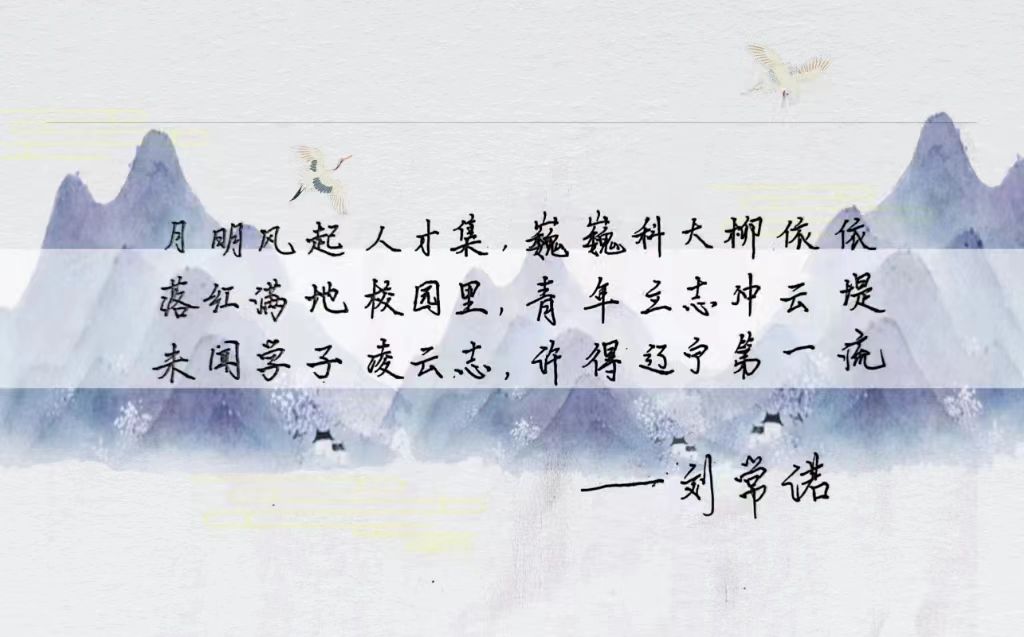 月明风起人才集,巍巍科大柳依依
落红满地校园里,青年立志冲云堤
未闻学子凌云志,许得辽宁第一流
——刘常诺